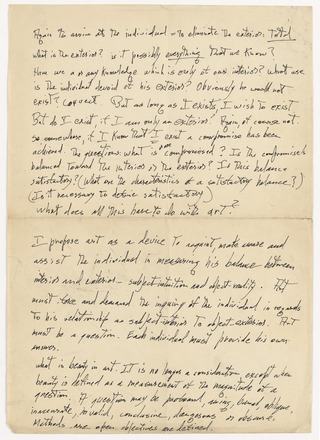 Again to arrive at the individual - to eliminate the exterior: Total
what is the exterior? is it possibly everything that we know?
Have we any knowledge which is only of our interior? What use
is the individual devoid of his exterior? Obviously he would not
exist? Correct. But as long as I exists, I wish to exist
But do I exist, if I am only an exterior. Again of course not.
So somewhere, if I know that I exist a compromise has been
achieved. The questions: what is compromised? Is the compromise
balanced toward the interior or the exterior? Is this balance
satisfactory? (What are the characteristics of a satisfactory balance?)
(Is it necessary to define satisfactory)
What does all this have to do with art?
I propose art as a device to acquaint, make aware and
assist the individual in measuring his balance between
interior and exterior - subject-intuition and object-reality. Art
must raise and demand the inquiry of the individual in regards
to his relationship as subject-interior to object-exterior. Art
must be a question. Each individual must provide his own
answer.
What is beauty in art. It is no longer a consideration except when
beauty is defined as a measurement of the magnitude of a
question. A question may be profound, boring, banal, oblique,
inaccurate, invalid, conclusive, dangerous or obscure.
Methods are open objectives are defined.